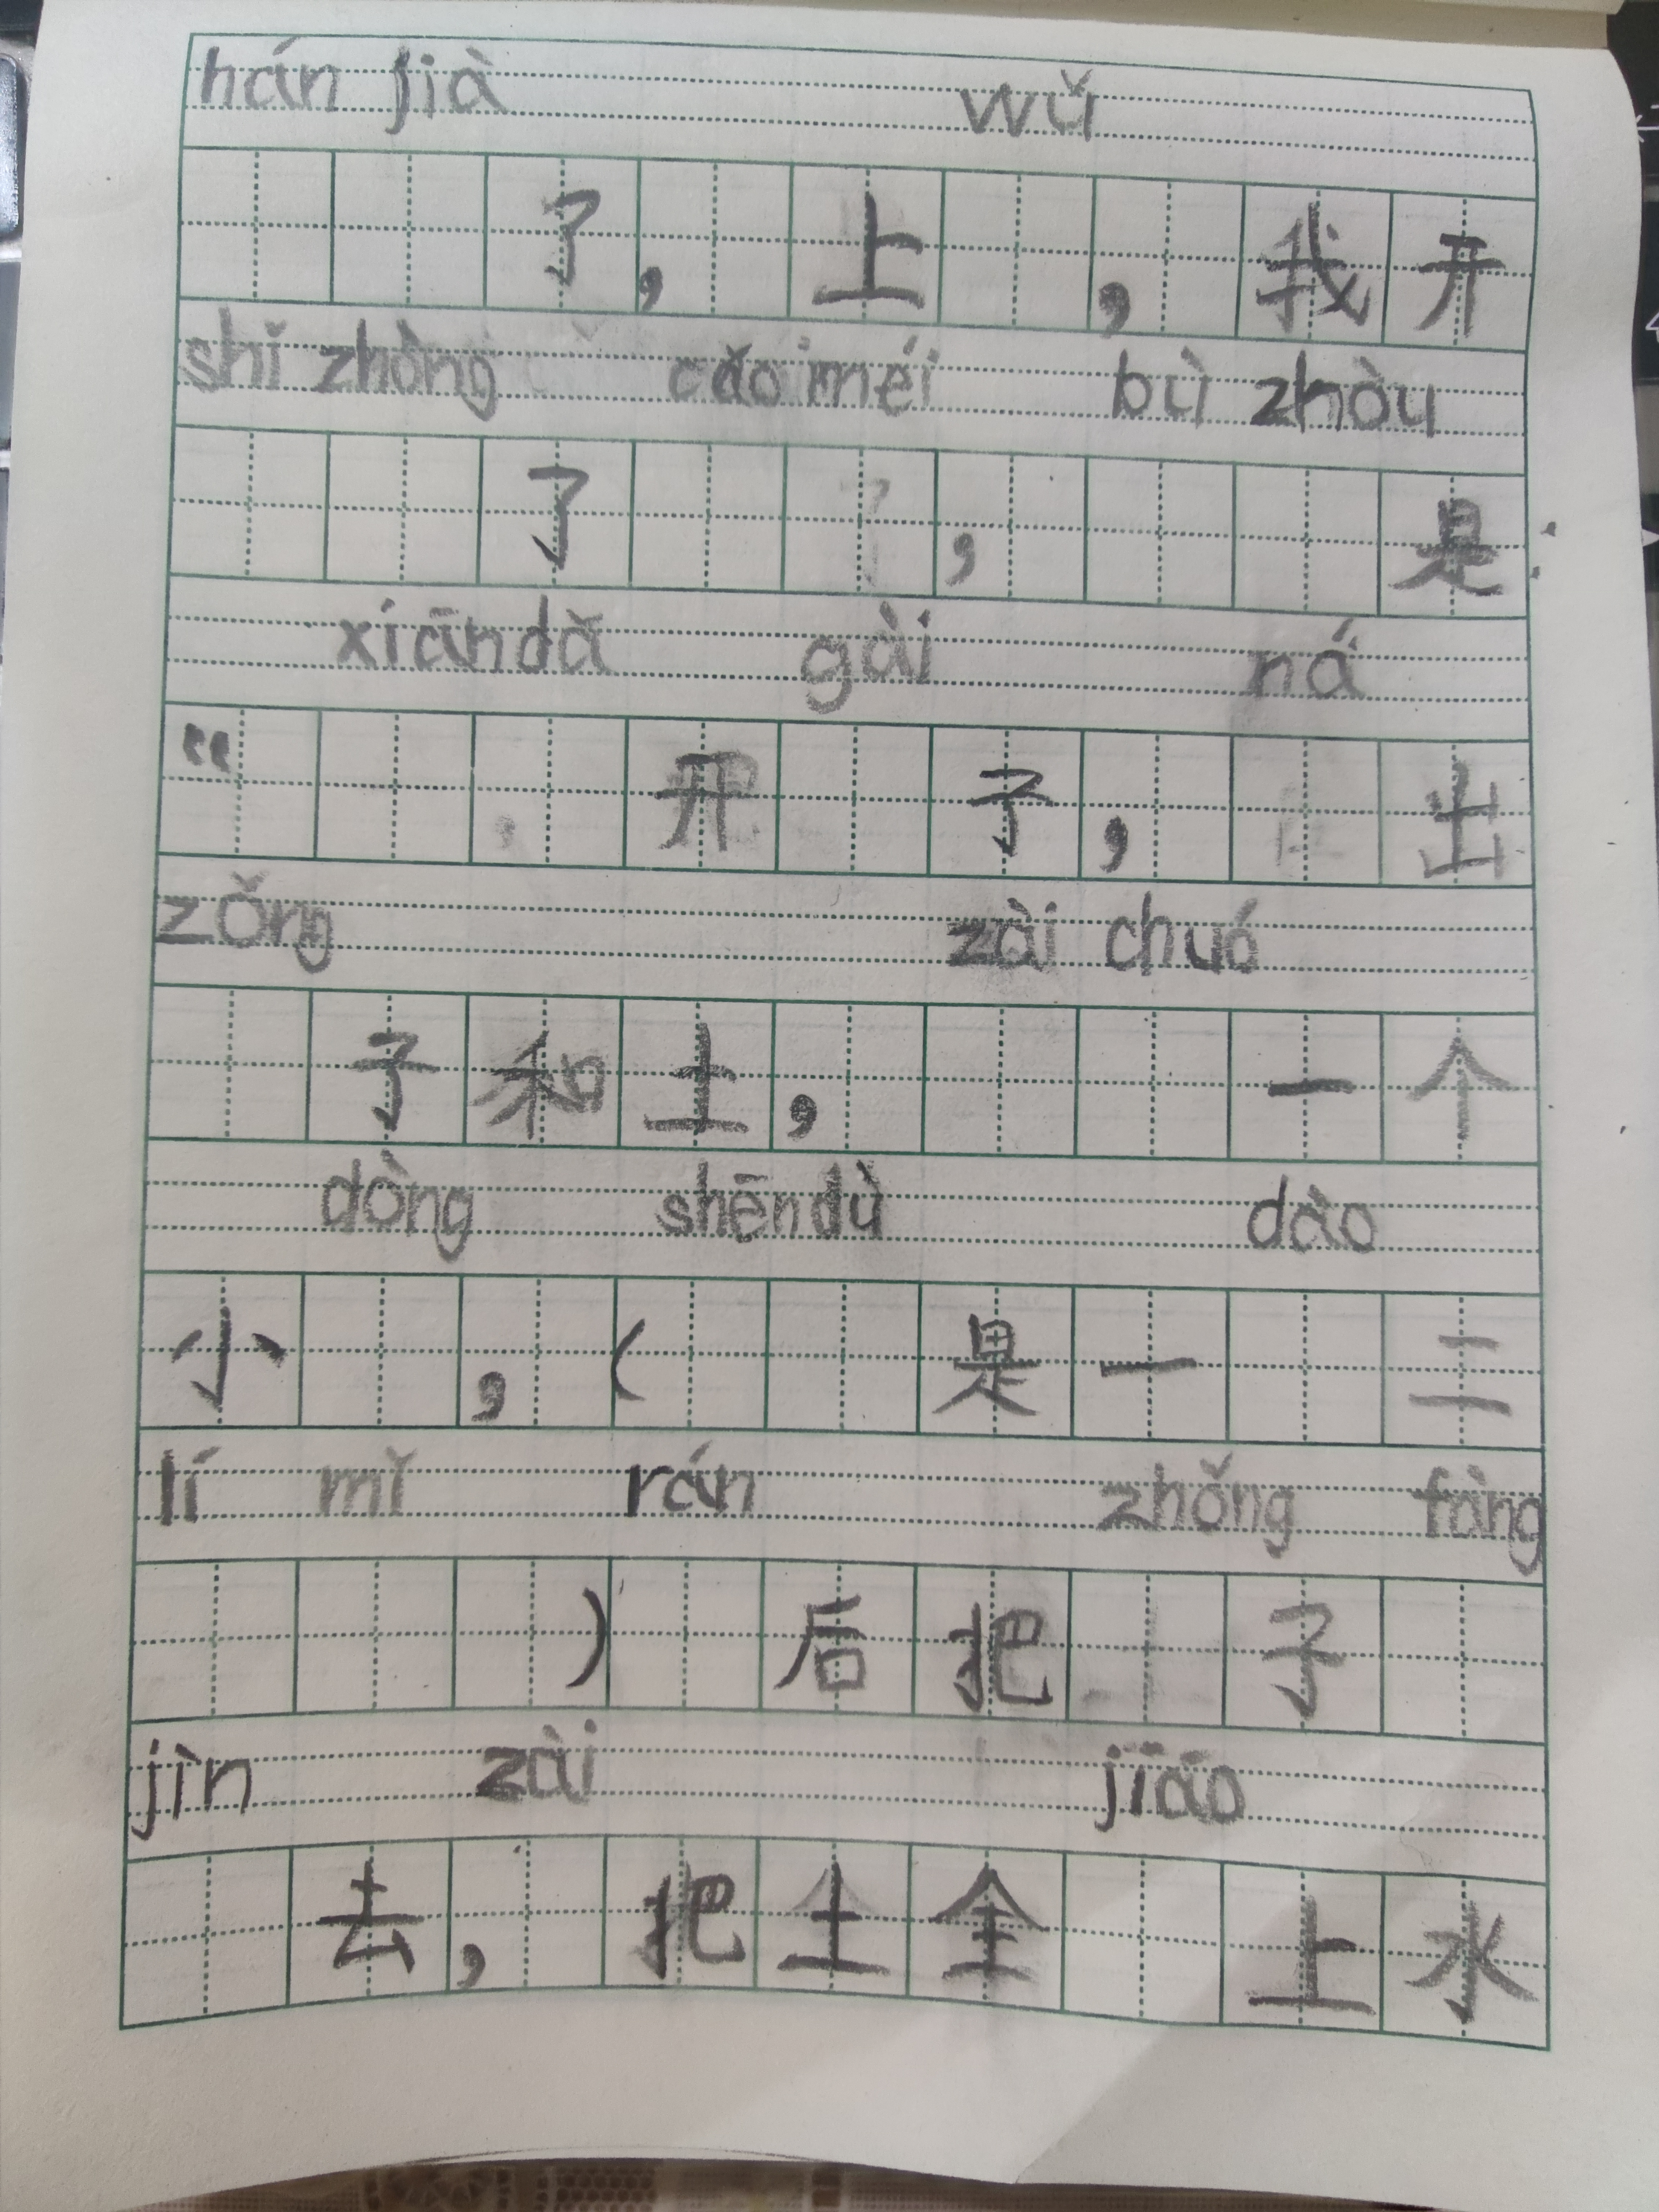 hán jià wǔ
了，上，我开
shǐ zhòng cǎo méi bù zhòu
了，是
xiān dǎ gài ná
“开子，出
zǒng zài chuó
子和土，一个
dòng shēn dù dào
小，（是一二
lí mǐ rán zhǒng fàng
）后把子
jìn zài jiāo
去，把土全上水